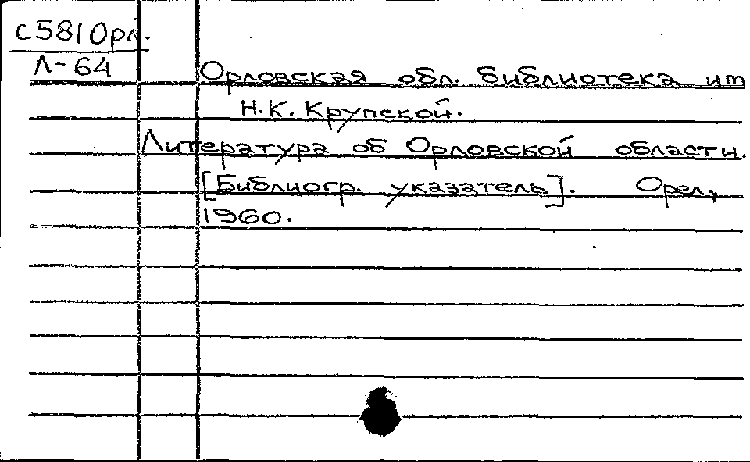 С581Орл.
Л-64
Орловская обл. библиотека им
Н.К. Крупской.
Литература об Орловской области.
[Библиогр. указатель]. Орел,
1960.